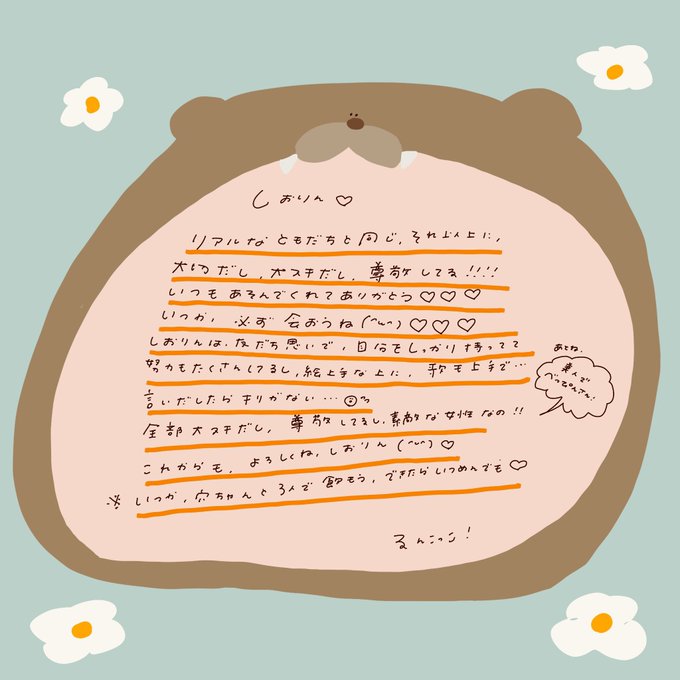 しおりん♡
リアルなともだちと同じ、それ以上に、
大切だし、大スキだし、尊敬してる!!!!
いつもあそんでくれてありがとう♡♡♡
いつか、必ず会おうね(^ω^)♡♡♡
しおりんは、友だち思いで、自分をしっかり持ってて
努力もたくさんしてるし、絵上手な上に、歌も上手で…
言いだしたらキリがない…
全部大スキだし、尊敬してるし、素敵な女性なの!!
これからも、よろしくね、しおりん(^ω^)♡
※いつか、穴ちゃんと3人で飲もう、できたらいつめんでも♡
あとね、
美人で
べっぴんさん!
るんこっこ!